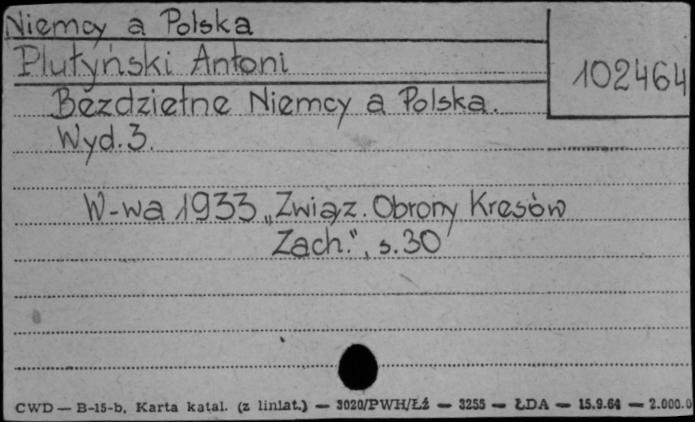 Niemcy a Polska
Plutyński Antoni
102464
Bezdzietne Niemcy a Polska.
Wyd. 3.
W-wa 1933 „Związ. Obrony Kresów
Zach.", s. 30
CWD — B-15-b, Karta katal. (z liniat.) — 3020/PWH/Łź — 3255 — ŁDA — 15.9.64 — 2.000.0